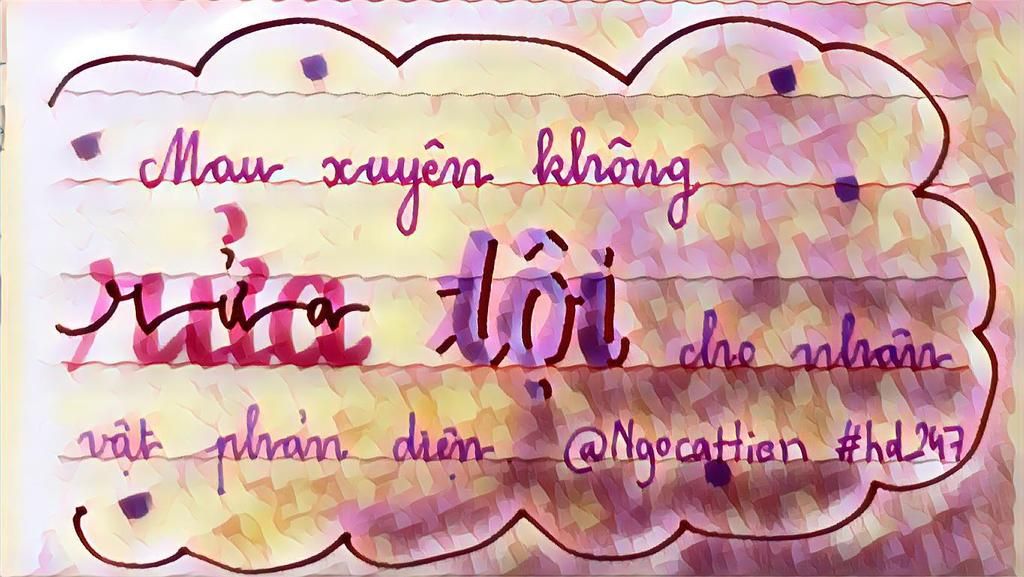 Mau xuyên không
rửa tội cho nhân
vật phản diện @Ngocattien #hd247